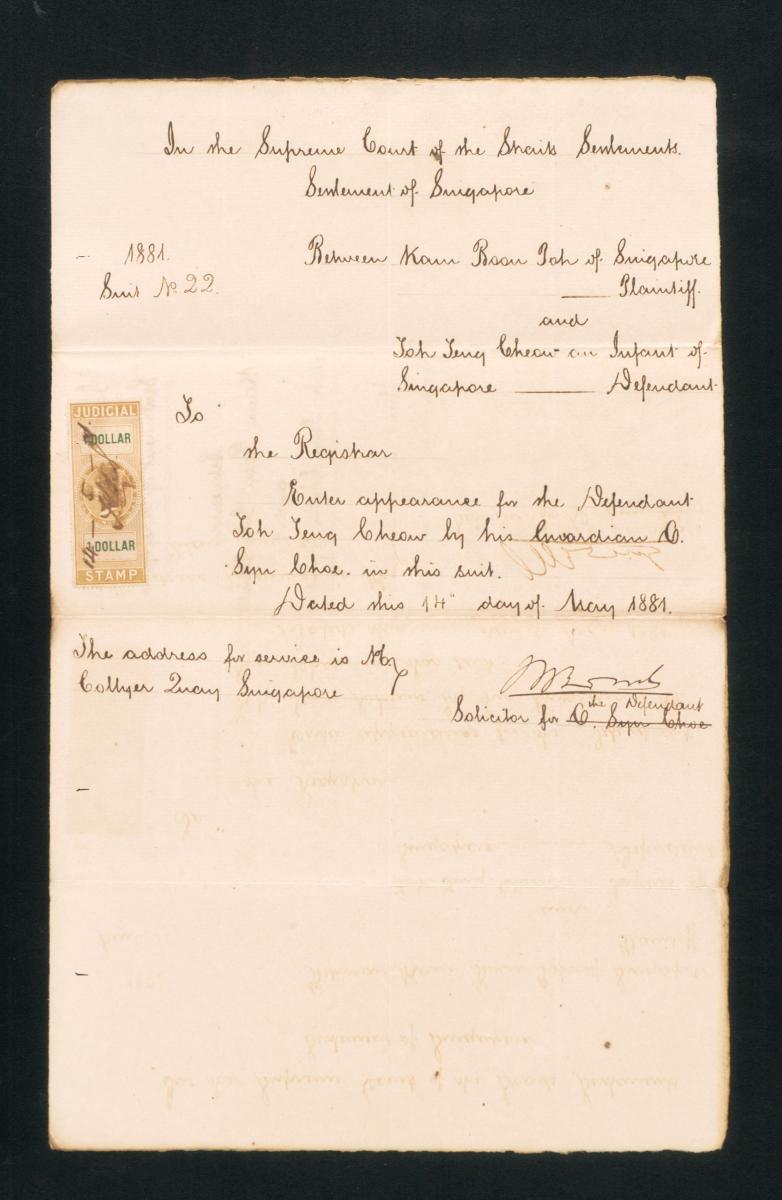 In the Supreme Court of the Straits Settlements.
Settlement of Singapore
1881.
Suit No. 22.
Between Kam Boon Toh of Singapore
Plaintiff.
and
Toh Teng Cheow an Infant of
Singapore Defendant
JUDICIAL
1 DOLLAR
1 DOLLAR
STAMP
14 - 5 -
To
the Registrar
Enter appearance for the Defendant
Toh Teng Cheow by his Guardian O.
Syn Choe. in this suit.
Dated this 14" day of May 1881.
The address for service is No 7
Collyer Quay Singapore
the Defendant
Solicitor for O. Syn Choe